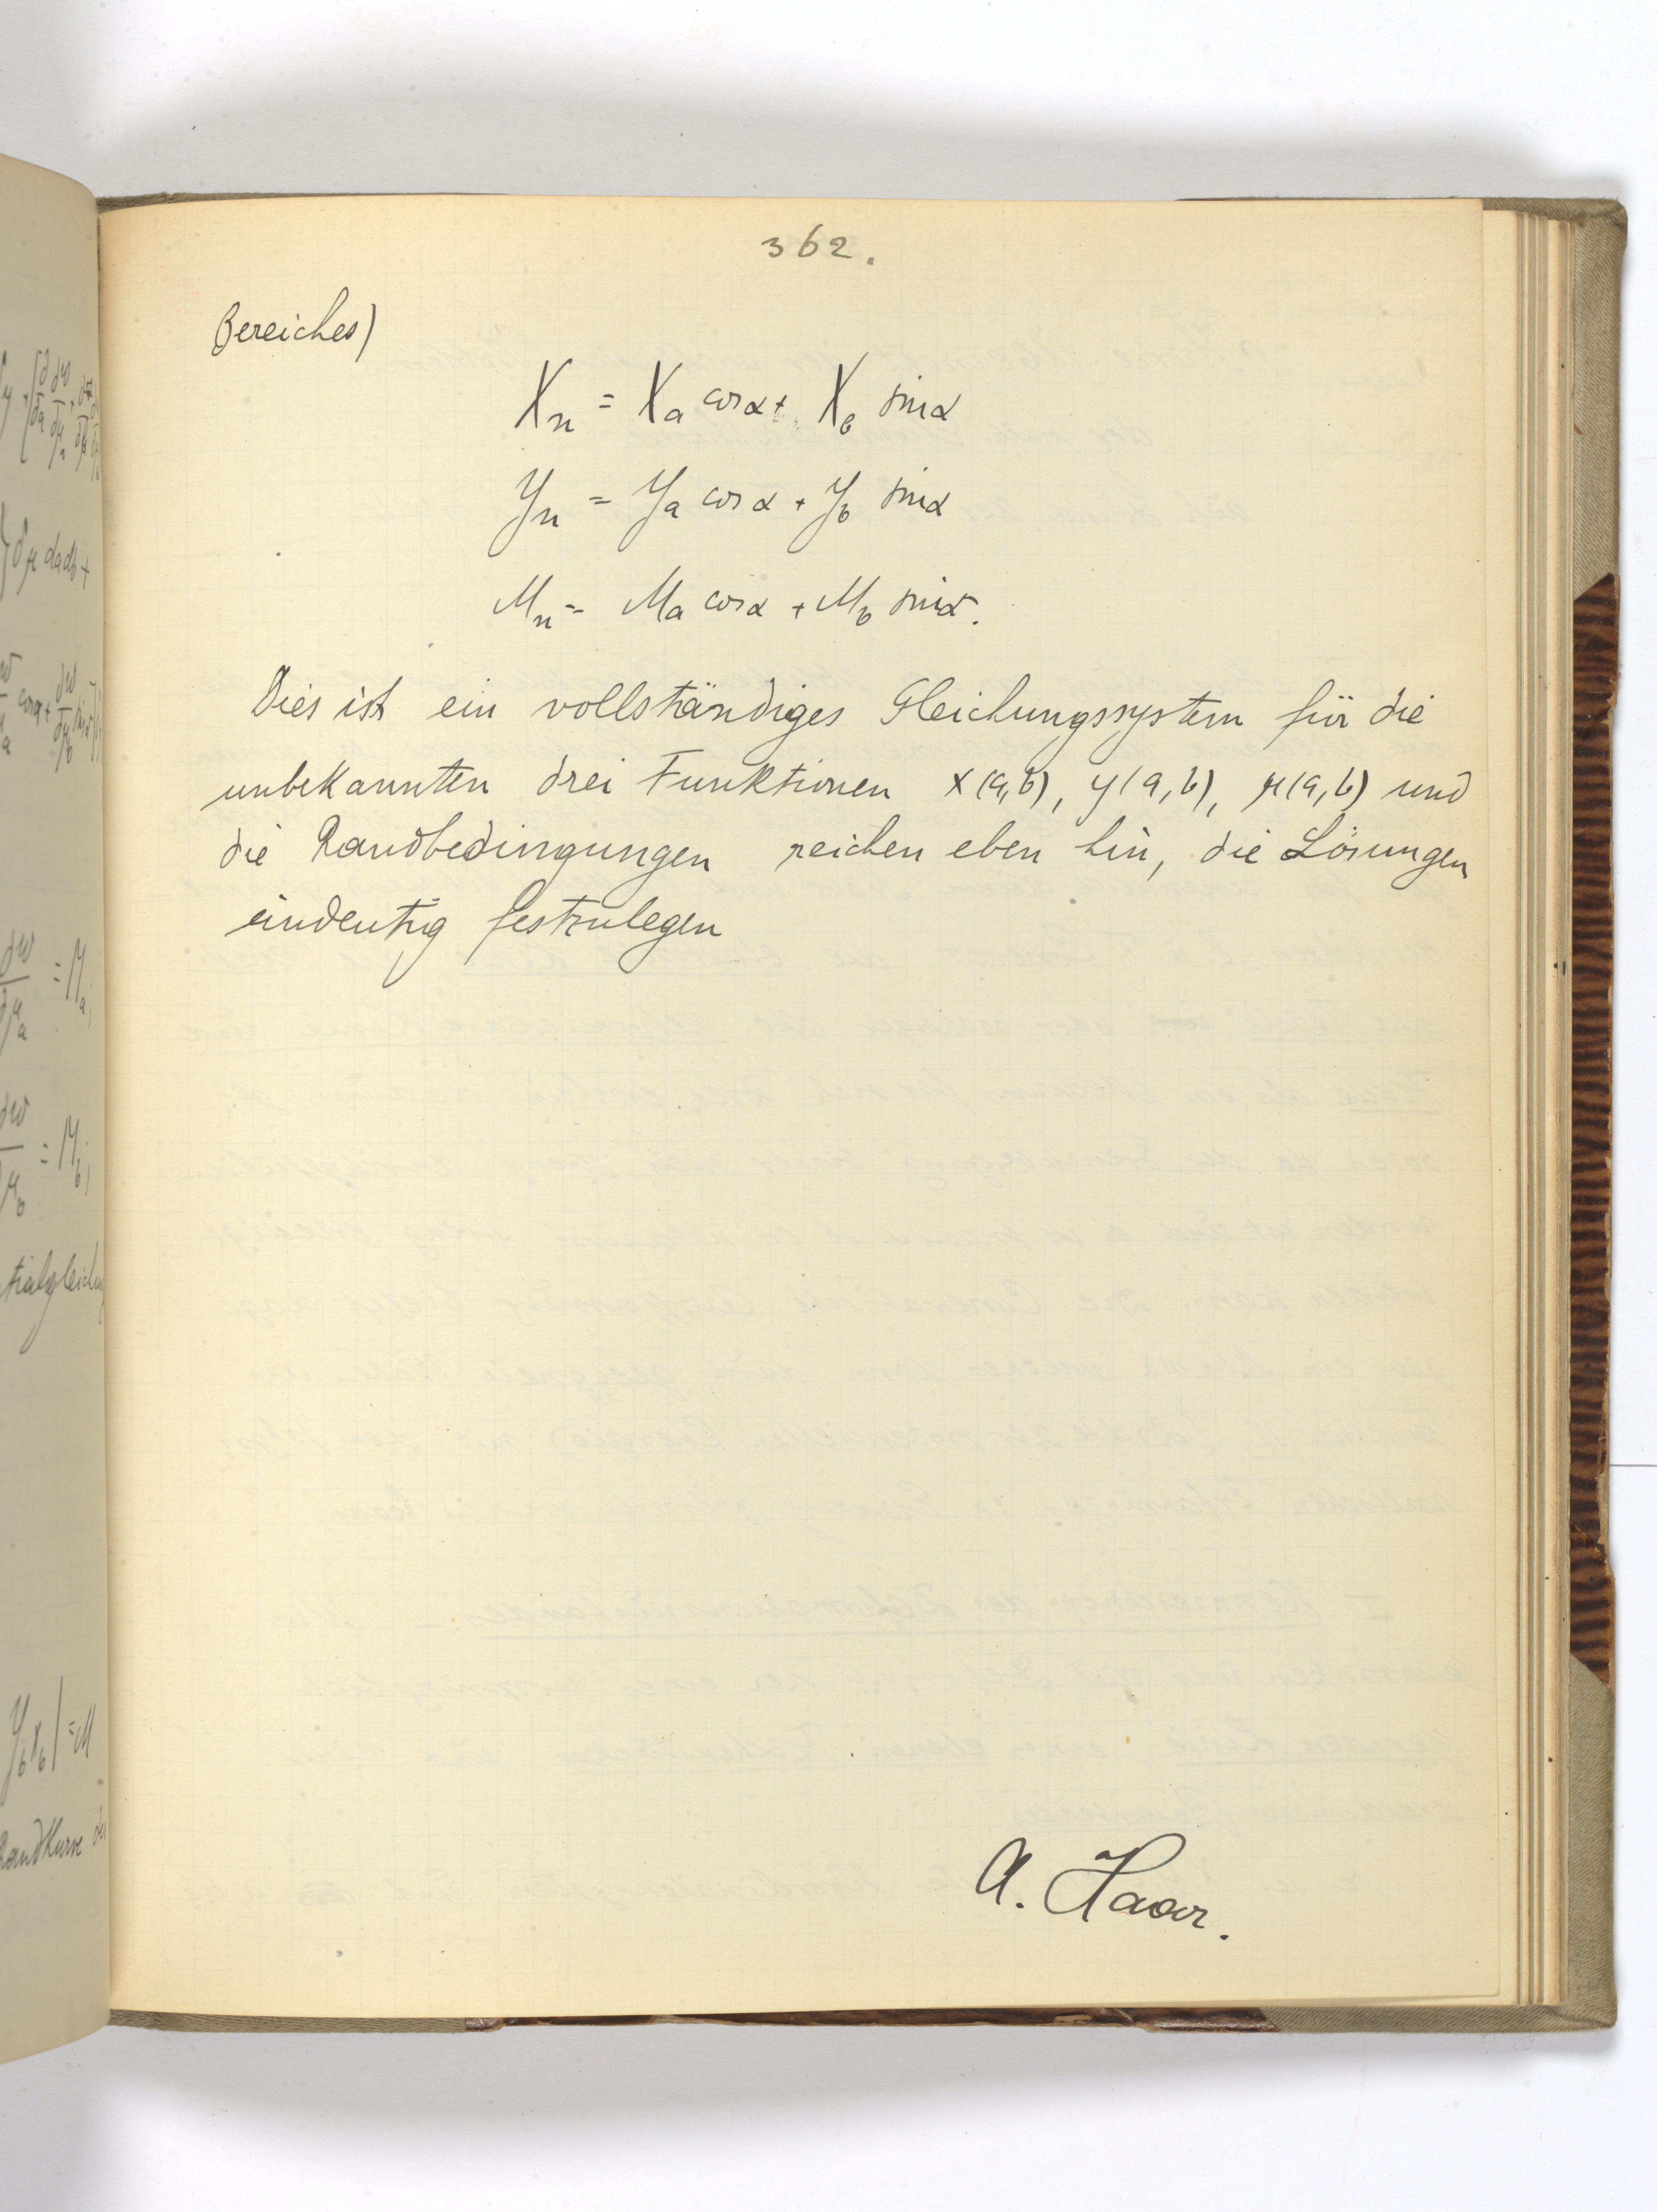 362.
Bereiches)
Xn = Xa cos α + Xb sin α
Yn = Ya cos α + Yb sin α
Mn = Ma cos α + Mb sin α.
Dies ist ein vollständiges Gleichungssystem für die
unbekannten drei Funktionen x(a,b), y(a,b), μ(a,b) und
die Randbedingungen reichen eben hin, die Lösungen
eindeutig festzulegen
A. Haar.